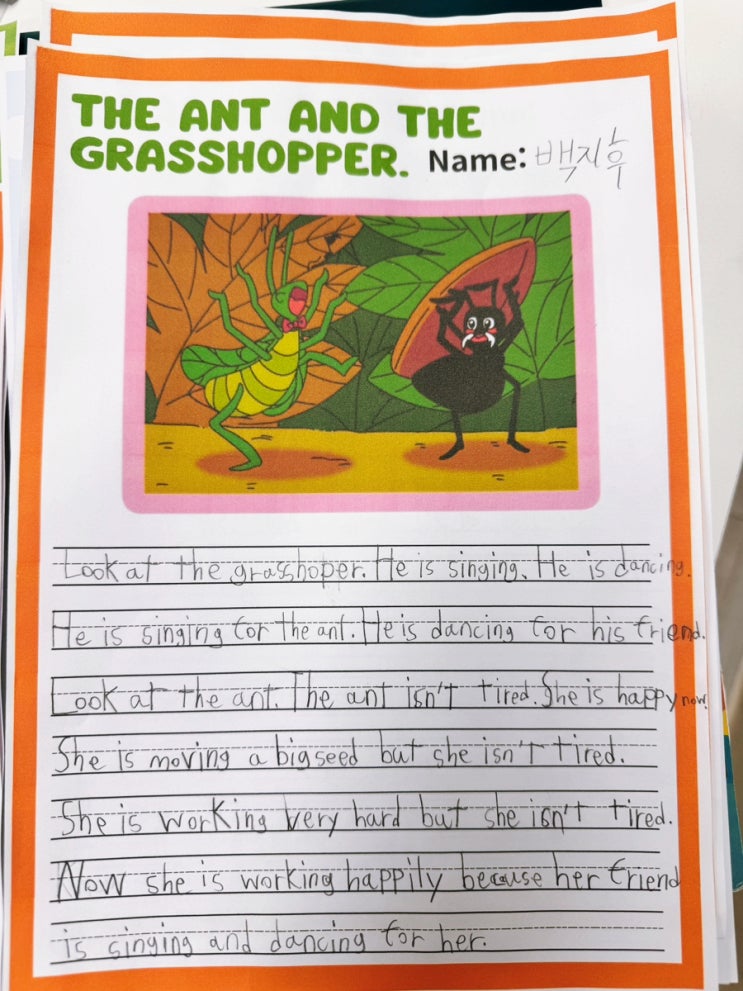 THE ANT AND THE
GRASSHOPPER. Name: 백지후
Look at the grasshoper. He is singing. He is dancing.
He is singing for the ant. He is dancing for his friend.
Look at the ant. The ant isn't tired. She is happy now.
She is moving a big seed but she isn't tired.
She is working very hard but she isn't tired.
Now she is working happily because her friend
is singing and dancing for her.